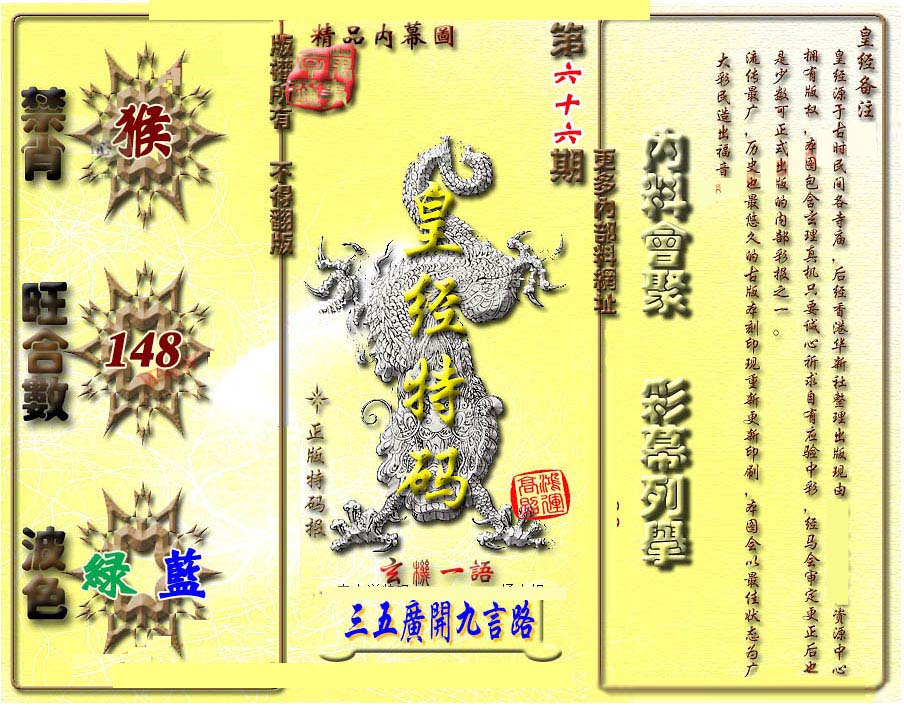 皇经备注
皇经源于古时民间各寺庙,后经香港华新社整理出版现由 资源中心
拥有版权,本图包含玄理真机只要诚心祈求自有应验中彩,经马会审定更正后也
是少数可正式出版的内部彩报之一。
流传最广,历史也最悠久的古版本刻印现重新更新印刷,本图会以最佳状态为广
大彩民造出福音
内料會聚 彩幕列舉
更多內部料網址
第六十六期
精品内幕圖
皇经特码
正版特码报
鴻運高照
玄機一語
三五廣開九言路
版權所有 不得翻版
禁肖
猴
旺合數
148
波色
緑 藍